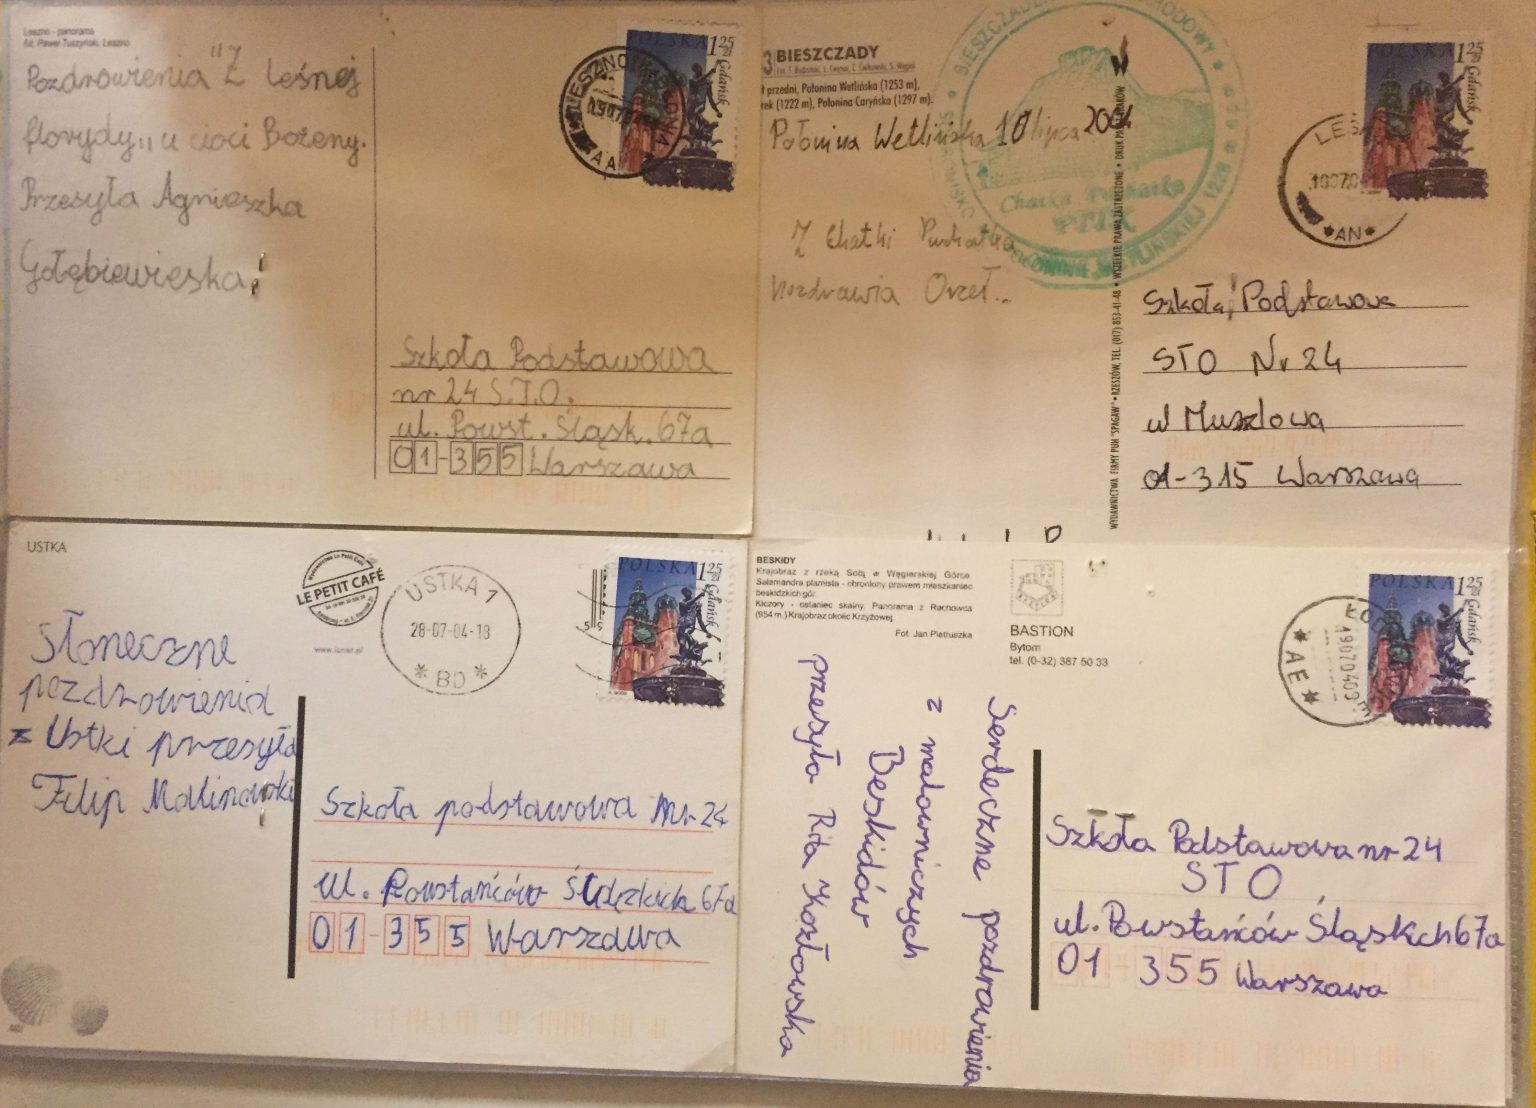 Leszno - panorama
fot. Paweł Tuszyński, Leszno
Pozdrowienia "Z Leśnej
florydy" u cioci Bożeny.
Przesyła Agnieszka
Gołębiewska
POLSKA 1 25 zł
Gdańsk
LESZNO
AA
Szkoła Podstawowa
nr 24 S.T.O.
ul. Powst. Śląsk. 67a
01-355 Warszawa
3 BIESZCZADY
przedni, Połonina Wetlińska (1253 m),
(1222 m), Połonina Caryńska (1297 m).
Połonina Wetlińska 10 lipca 2004
Z Chatki Puchatka
pozdrawia Orzeł...
Chatka Puchatka
PTTK
WYDAWNICTWA FIRMY PUH "SPAGAW" • RZESZÓW, TEL. (017) 853-41-48 • WSZELKIE PRAWA ZASTRZEŻONE • DRUK
POLSKA 1 25 zł
Gdańsk
*AN*
Szkoła Podstawowa
STO Nr 24
ul Muszlowa
01-315 Warszawa
USTKA
LE PETIT CAFÉ
USTKA 1
28-07-04-18
* BD *
POLSKA 1 25 zł
Gdańsk
Słoneczne
pozdrowienia
z Ustki przesyła
Filip Malinowski
Szkoła podstawowa Nr 24
ul. Powstańców Śląskich 67a
01-355 Warszawa
BESKIDY
Krajobraz z rzeką Sołą w Węgierskiej Górce
Salamandra plamista - chroniony prawem mieszkaniec
beskidzkich gór.
Kiczory - ostaniec skalny. Panorama z Rachowca
(954 m.) Krajobraz okolic Krzyżowej.
Fot. Jan Pietruszka
BASTION
Bytom
tel. (0-32) 387 50 33
POLSKA 1 25 zł
Gdańsk
* AE *
Serdeczne pozdrowienia
z malowniczych
Beskidów
przesyła Rita Kozłowska
Szkoła Podstawowa nr 24
STO
ul. Powstańców Śląskich 67a
01 355 Warszawa